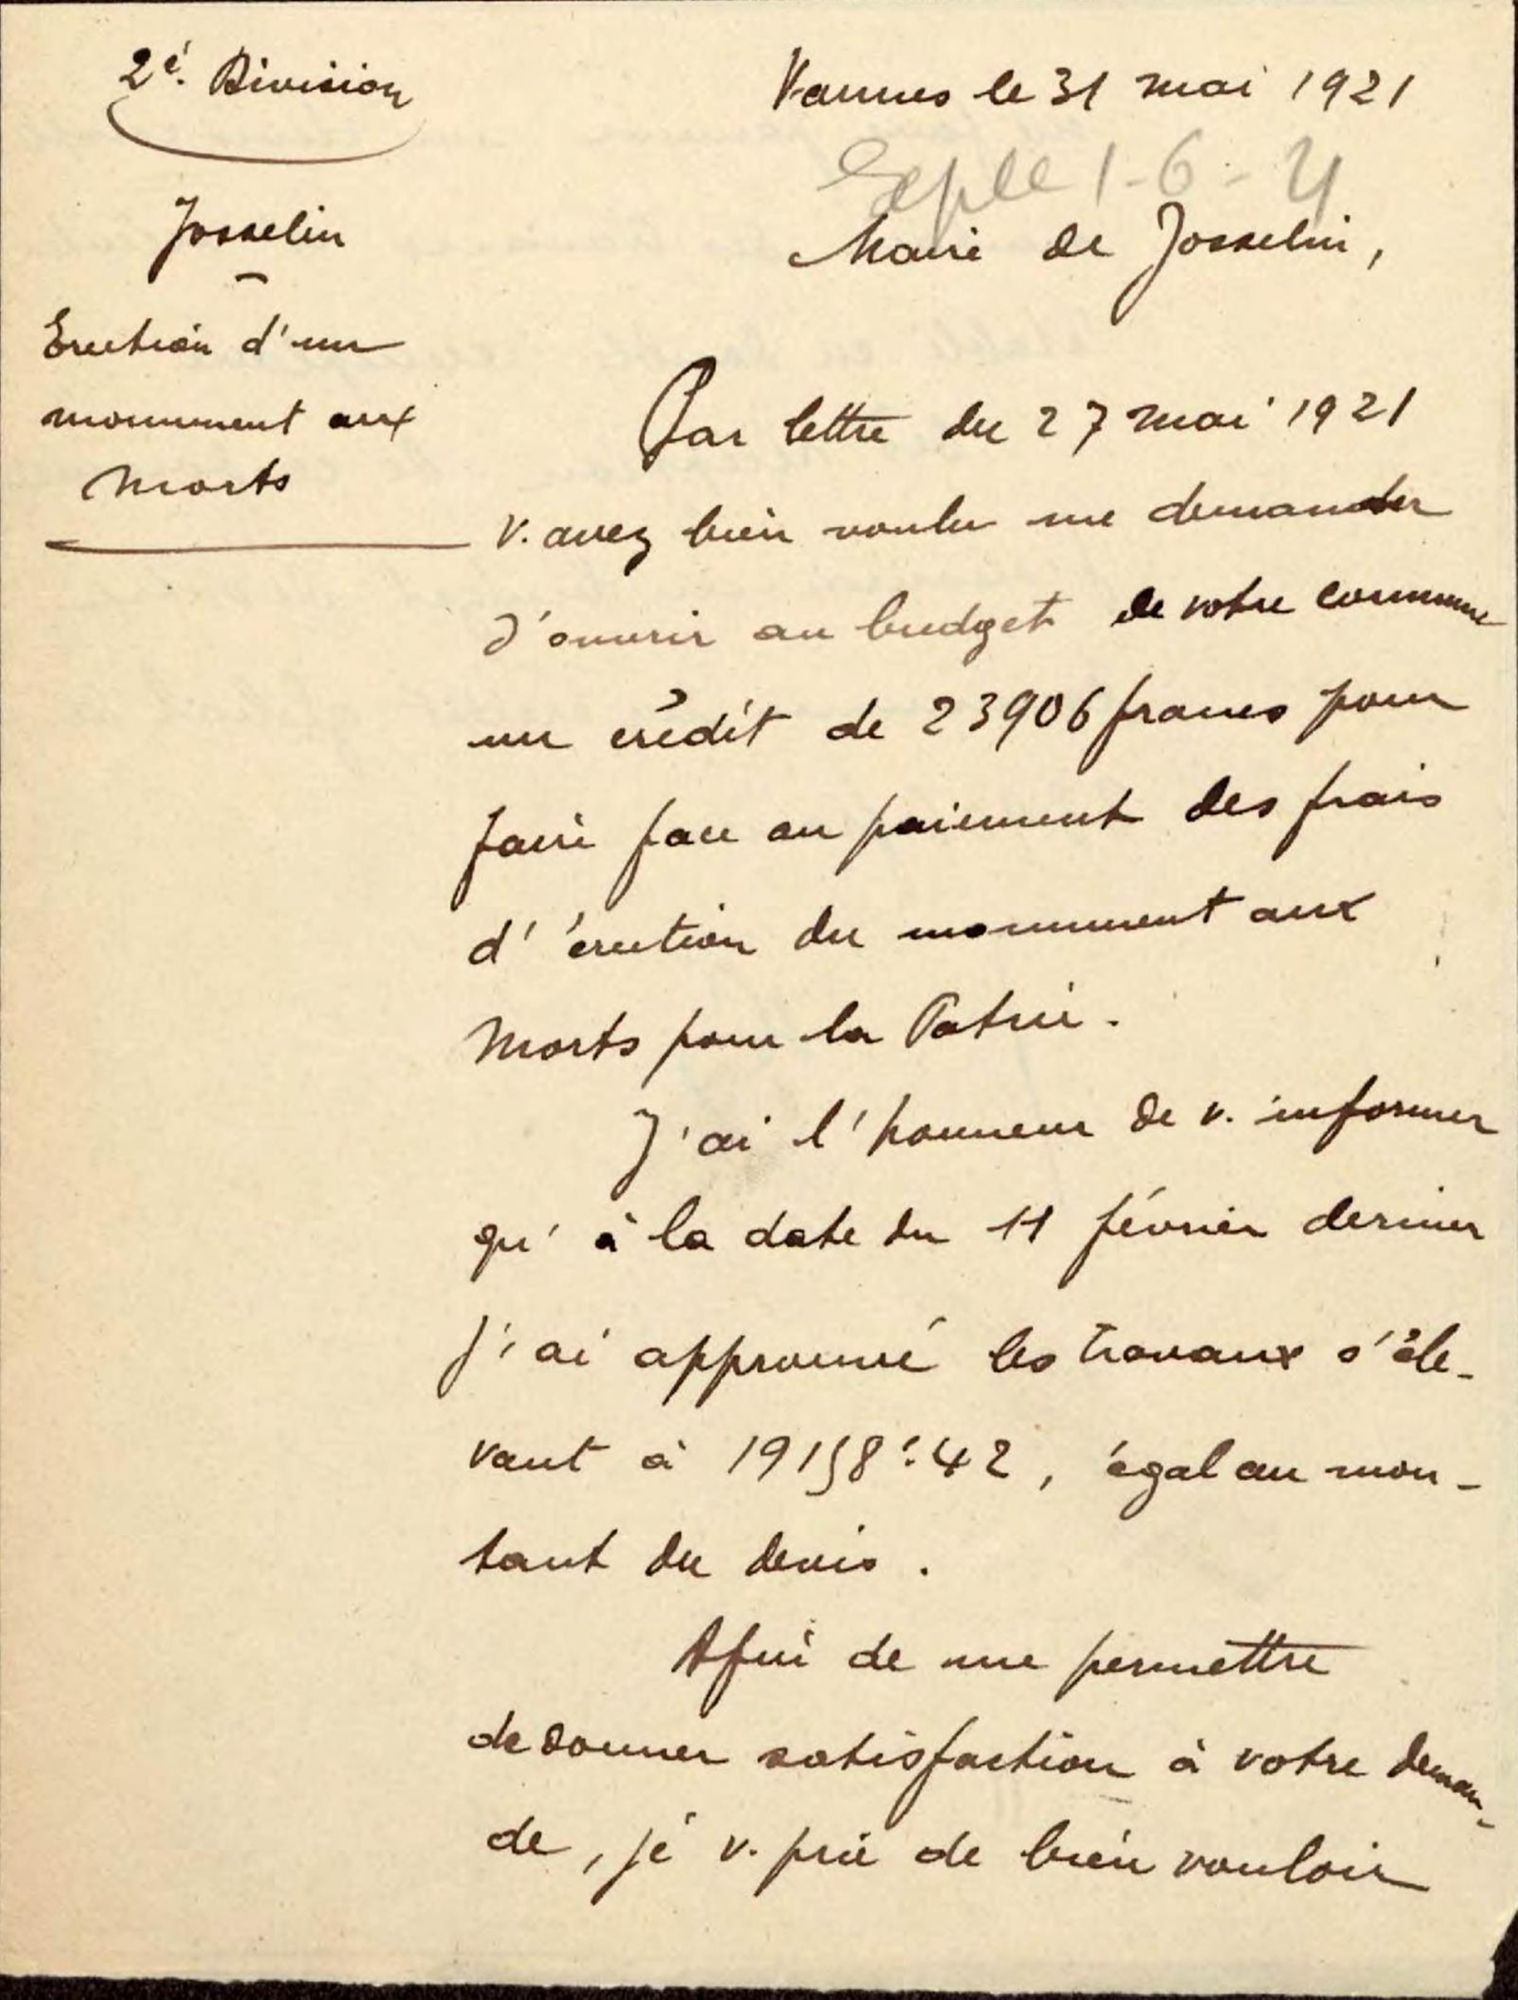 2è. Division
Josselin
Erection d'un
monument aux
Morts
Vannes le 31 mai 1921
1-6-21
Maire de Josselin,
Par lettre du 27 mai 1921
v. avez bien voulu me demander
d'ouvrir au budget de votre commune
un crédit de 23906 francs pour
faire face au paiement des frais
d'érection du monument aux
Morts pour la Patrie.
J'ai l'honneur de v. informer
qu'à la date du 11 février dernier
j'ai approuvé les travaux s'éle-
vant à 19158f42, égal au mon-
tant du devis.
Afin de me permettre
de donner satisfaction à votre deman-
de, je v. prie de bien vouloir